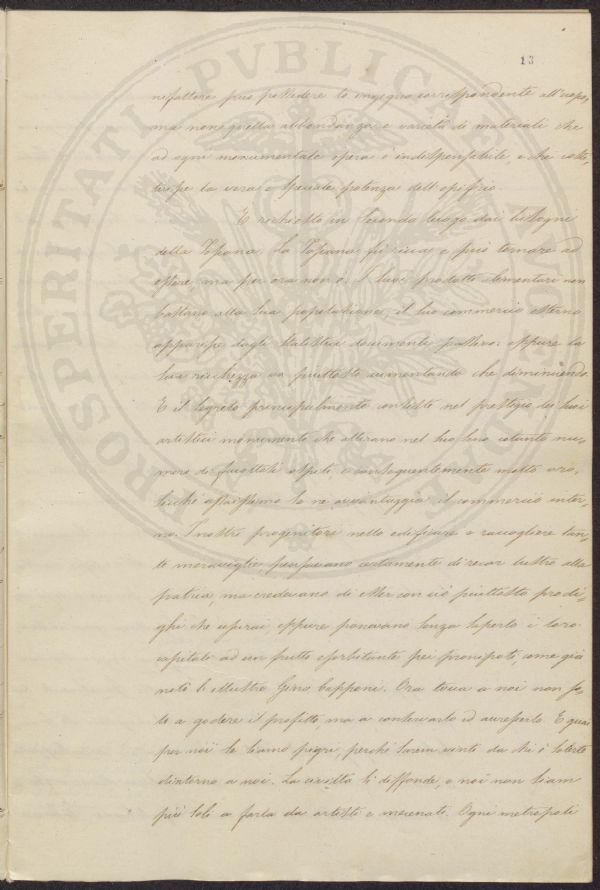 13
nifattore può possedere lo ingegno corrispondente all'uopo,
ma non quella abbondanza e varietà di materiali che
ad ogni monumentale opera è indispensabile, e che costi,
tuisce la vera e speciale potenza dell'opificio.
È richiesto in secondo luogo dai bisogni
della Toscana. La Toscana fu ricca e può tornare ad
essere, ma per ora non è. I suoi prodotti elementari non
bastano alla sua popolazione, il suo commercio esterno
apparisce dagli statistici documenti passivo: eppure la
sua ricchezza va piuttosto aumentando che diminuendo.
E il segreto principalmente consiste nel prestigio dei suoi
artistici monumenti che attirano nel suo seno cotanto nu,,
mero di facoltosi ospiti, e conseguentemente molto oro,
sicchè assaissimo se ne avvantaggia il commercio inter,,
no. I nostri progenitori nello edificare e raccogliere tan,,
te meraviglie, pensavano certamente di recar lustro alla
patria, ma credevano di esser con ciò piuttosto prodi,,
ghi che usurai, eppure ponevano senza saperlo i loro
capitali ad un frutto esorbitante pei pronipoti, come già
notò l'illustre Gino Capponi. Ora tocca a noi non so,,
lo a godere il profitto, ma a conservarlo ed accrescerlo. E guai
per noi se siamo pigri, perchè sarem vinti da chi è solerte
dintorno a noi. La civiltà si diffonde, e noi non siam
più soli a farla da artisti e mecenati. Ogni metropoli
PROSPERITATI PVBLICAE AVGENDAE